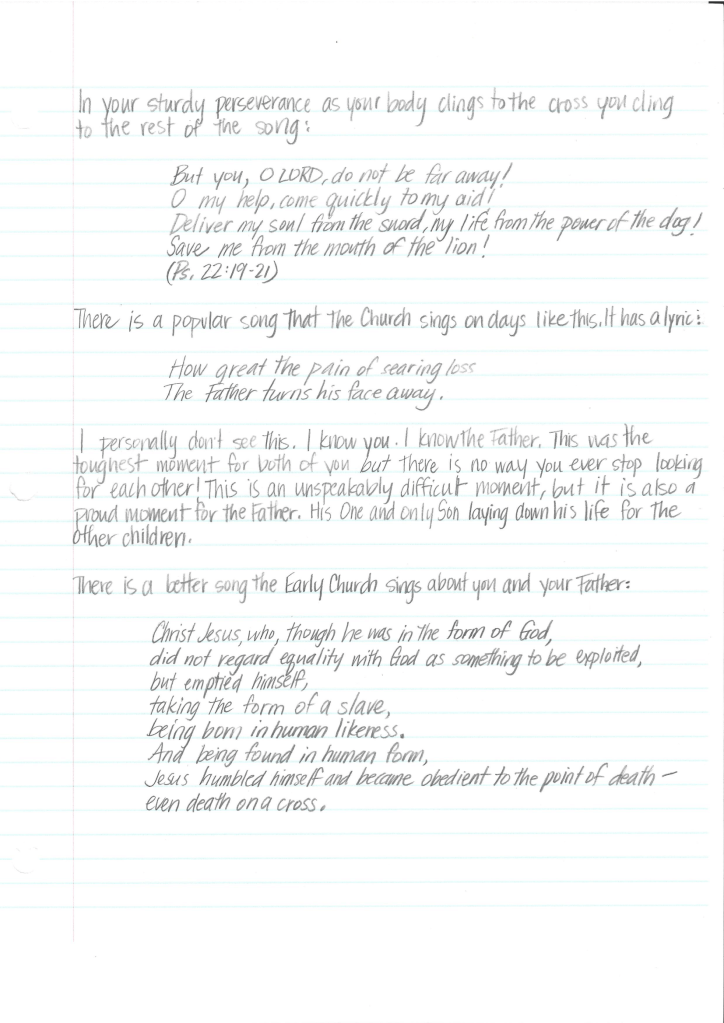 In your sturdy perseverance as your body clings to the cross you cling
to the rest of the song:
But you, O LORD, do not be far away!
O my help, come quickly to my aid!
Deliver my soul from the sword, my life from the power of the dog!
Save me from the mouth of the lion!
(Ps. 22:19-21)
There is a popular song that the Church sings on days like this. It has a lyric:
How great the pain of searing loss
The Father turns his face away.
I personally don't see this. I know you. I know the Father. This was the
toughest moment for both of you but there is no way you ever stop looking
for each other! This is an unspeakably difficult moment, but it is also a
proud moment for the Father. His One and only Son laying down his life for the
other children.
There is a better song the Early Church sings about you and your Father:
Christ Jesus, who, though he was in the form of God,
did not regard equality with God as something to be exploited,
but emptied himself,
taking the form of a slave,
being born in human likeness.
And being found in human form,
Jesus humbled himself and became obedient to the point of death –
even death on a cross.